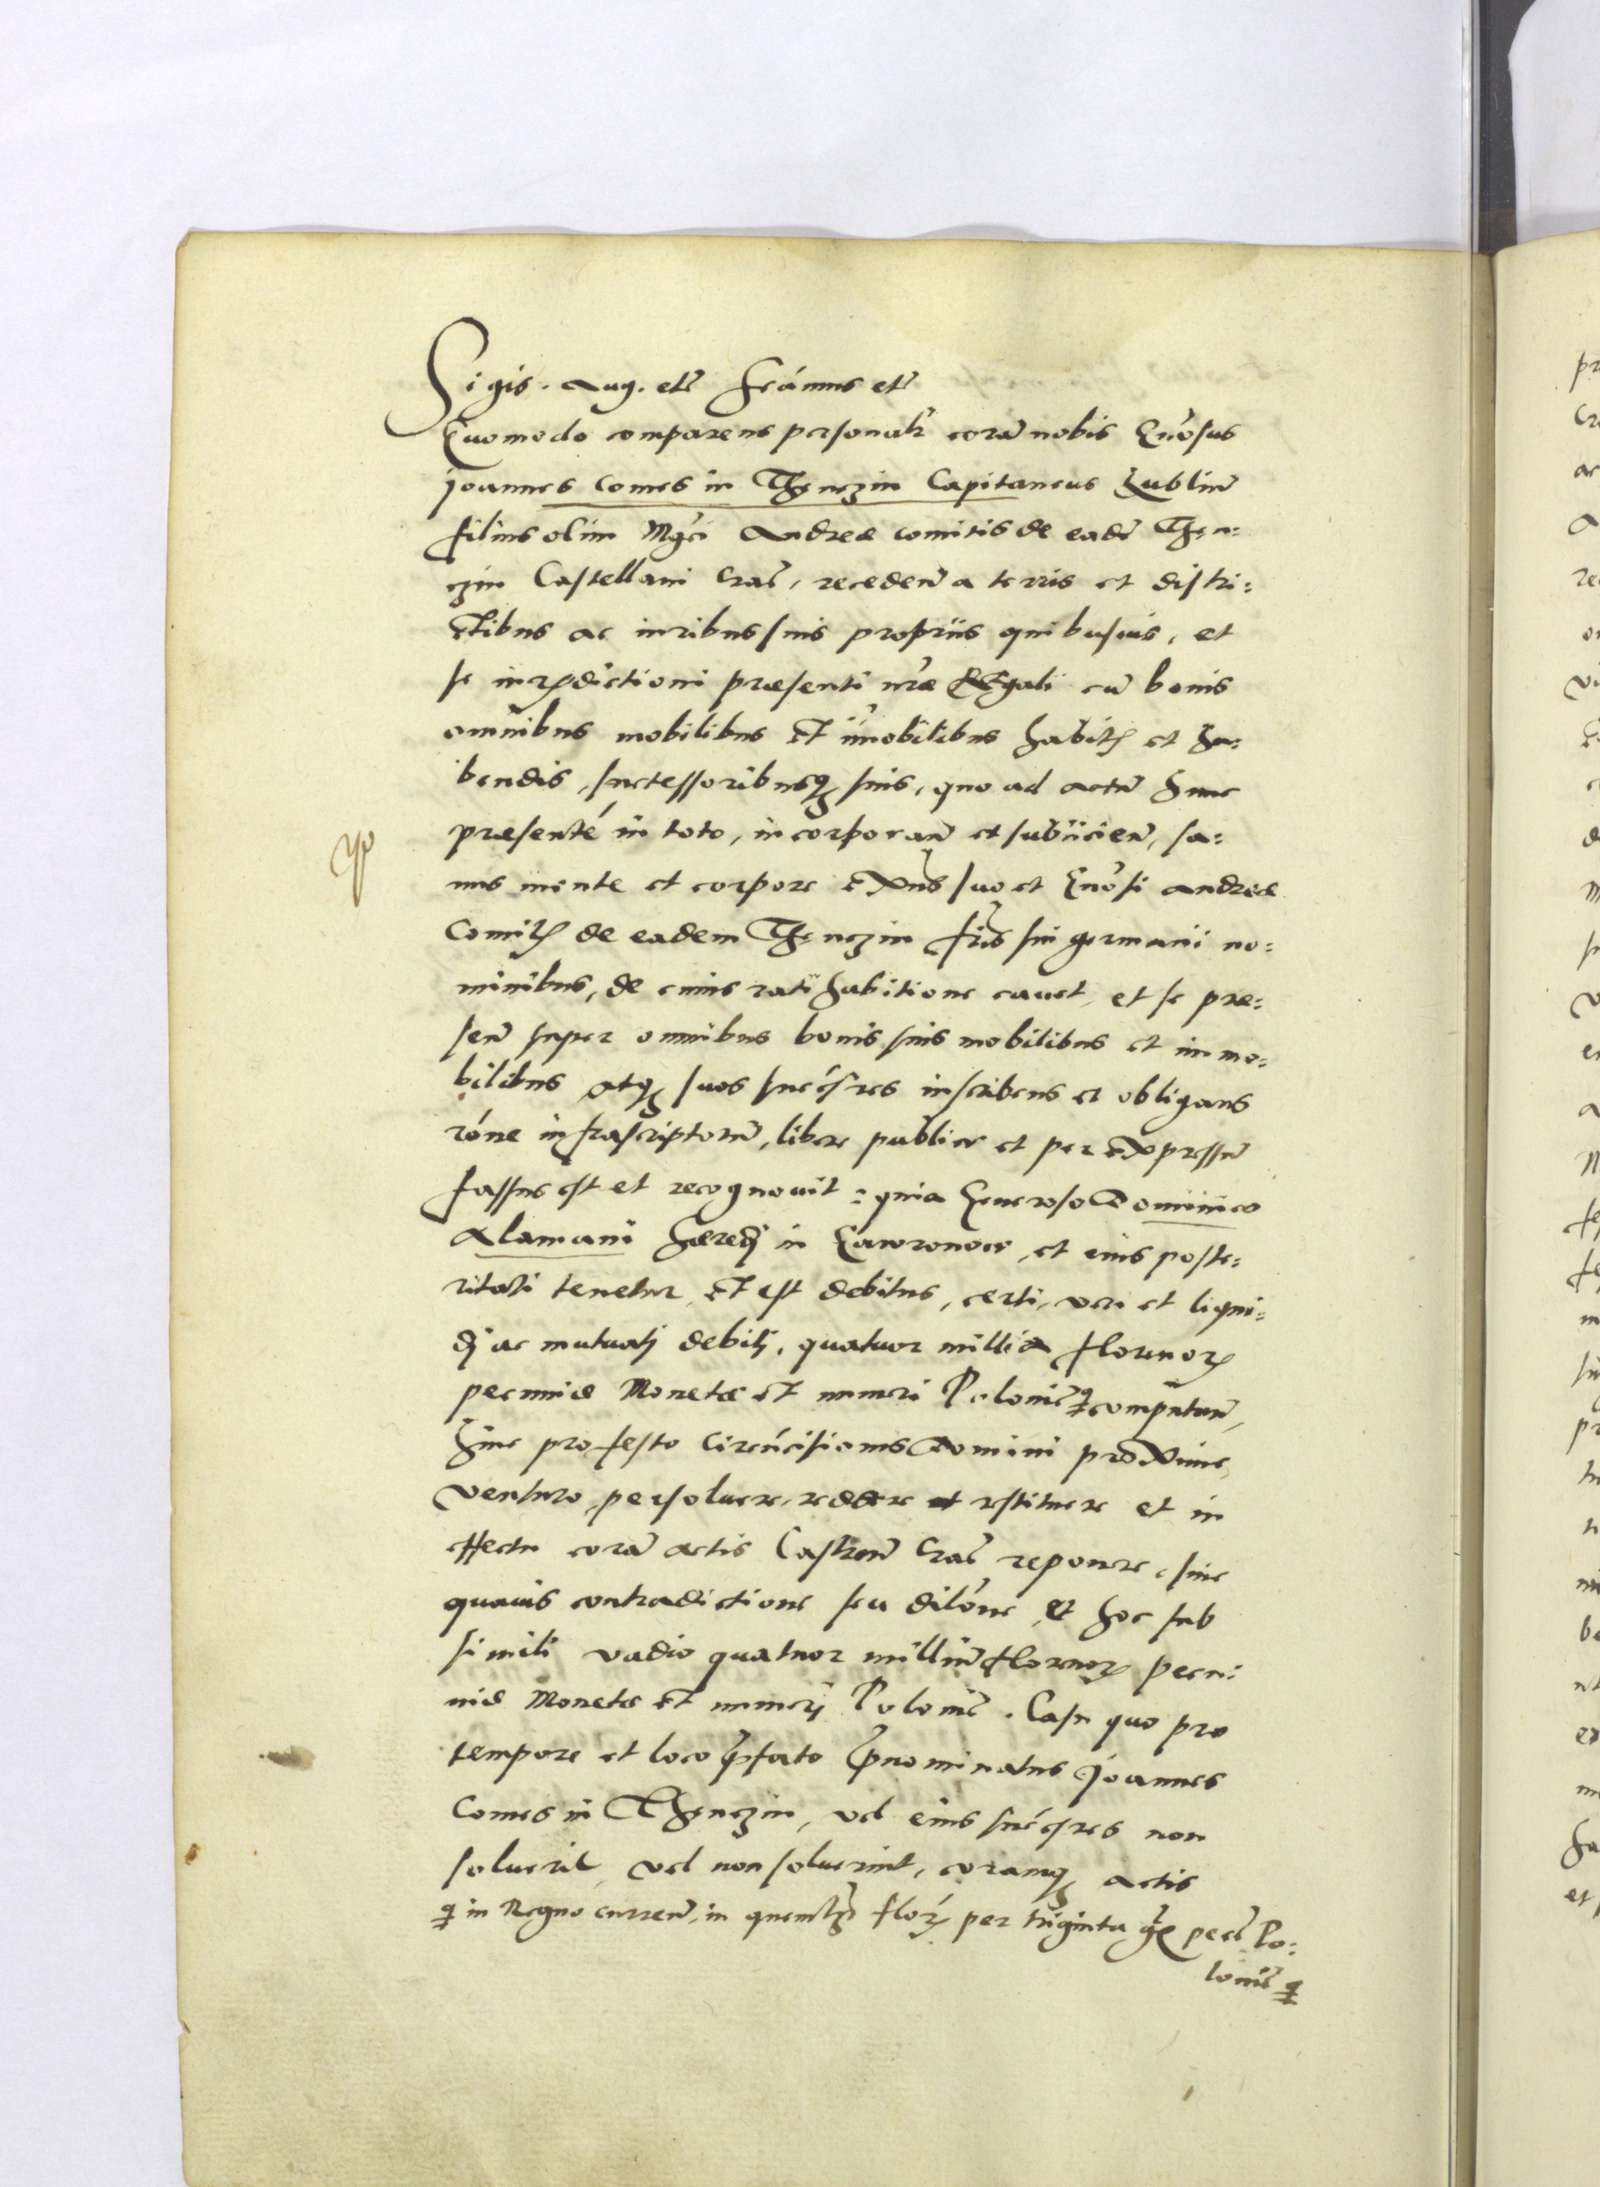 Sigis. Aug. etc̃ Scimus etc̃
Quomodo comparens personalr̃ corã nobis Gñosus
Joannes Comes in Thęnczin Capitaneus Lublineñ
filius olim Mgci Andreæ comitis de eadẽ Thęn=
czin Castellani Craĉ, recedeñ a terris et distri=
ctibus ac iuribus suis proprijs quibusuis, et
se iurisdictioni præsenti nr̃æ Regali cũ bonis
omnibus mobilibus et im̃obilibus habitis et ha=
bendis, successoribusq3 suis, quo ad actũ hunc
præsenté in toto, incorporañ et subijcieñ, sa=
nus mente et corpore exñs suo et Gñosi Andreæ
Comitis de eadem Thęnczin fr̃is sui germani no=
minibus, de cuius ratihabitione cauet, et se præ=
señ super omnibus bonis suis mobilibus et immo=
bilibus atq3 suos succes̃res inscribens et obligans
róne infrascriptorũ, libere publice et per expressũ
fassus est et recognouit: quia Generoso Dominico
Alamani hæredi in et eius poste=
ritati tenetur, et est debitus, certi, veri et liqui=
di ac mutuati debiti, quatuor millia florenorũ
pecuniæ Monetæ et numeri Poloniĉ computañ,
hinc pro festo Circũcisionis Domini proxime
venturo, persoluere, reddere et restituere et in
effectu corã actis Castreñ Craĉ reponere, sine
quauis contradictione seu dilõne, et hoc sub
simili vadio quatuor milliũ florenorũ pecu=
niæ Monetæ et numeri Poloniĉ. Casu quo pro
tempore et loco p̃fato p̃nominatus Joannes
Comes in Thęnczin, vel eius succes̃res non
soluerit, vel non soluerint, coramq3 actis
in Regno curreñ, in quemlib3 flor3 per triginta gr̃ pecũ Po=
loniĉ